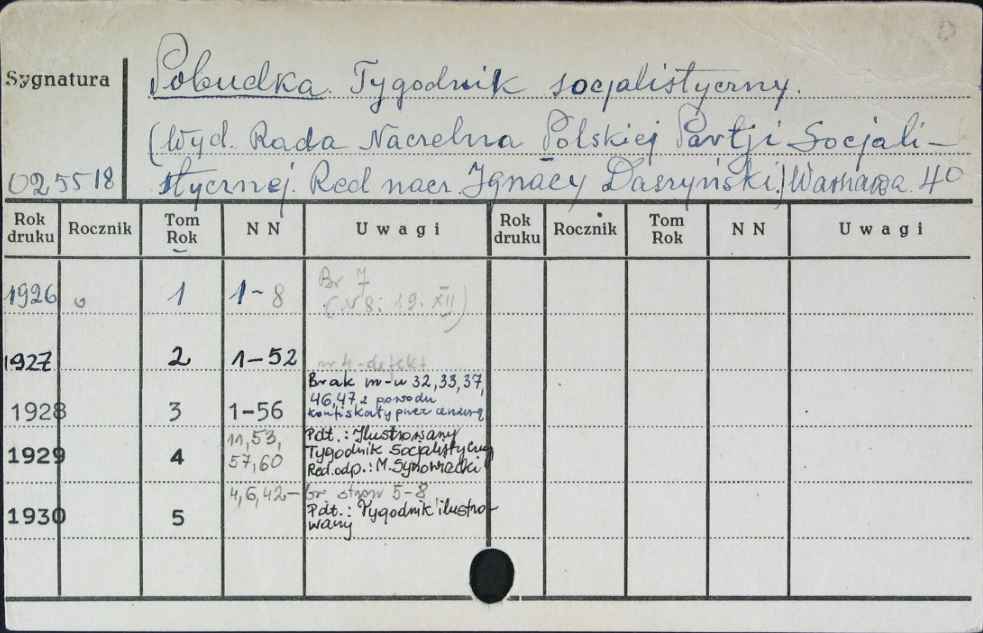 Sygnatura
Pobudka. Tygodnik socjalistyczny.
(Wyd. Rada Naczelna Polskiej Partji Socjali-
025518 stycznej. Red nacz. Ignacy Daszyński.) Warszawa 4°
Rok druku Rocznik Tom Rok NN Uwagi Rok druku Rocznik Tom Rok NN Uwagi
1926 1 1-8 Br 7
(Nr 8: 19. XII)
1927 2 1-52 nr 4-defekt
1928 3 1-56 Brak nr-u 32, 33, 37,
46, 47 z powodu
konfiskaty przez cenzurę
1929 4 11, 53,
57, 60 Pdt.: Ilustrowany
Tygodnik Socjalistyczny
Red. odp.: M. Synowiecki
1930 5 4, 6, 42- br stron 5-8
Pdt.: Tygodnik ilustro-
wany